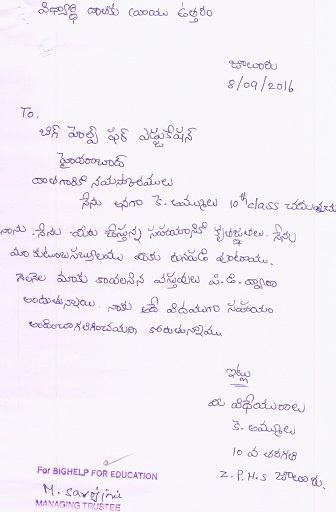 విద్యార్థి దాతకు వ్రాయు ఉత్తరం
జాలూరు
8/09/2016
To,
బిగ్ హెల్ప్ ఫర్ ఎడ్యుకేషన్
హైదరాబాద్
దాతగారికి నమస్కారములు
నేను అనగా కె. అమ్ములు 10th class చదువుచు
న్నాను. నేను మీకు చేస్తున్న సహాయానికి కృతజ్ఞతలు. నేను
మా కుటుంబసభ్యులము మీకు రుణపడి వుంటాము.
నెలనెల మాకు కావలసిన వస్తువులు పి.డి. ద్వారా
అందుతున్నాయి. నాకు ఇదే విధముగా సహాయం
అందించాలని కోరుతున్నాము.
ఇట్లు
మీ విధేయురాలు
కె. అమ్ములు
10 వ తరగతి
Z.P.H.S జాలూరు.
For BIGHELP FOR EDUCATION
M. Sarojini
MANAGING TRUSTEE